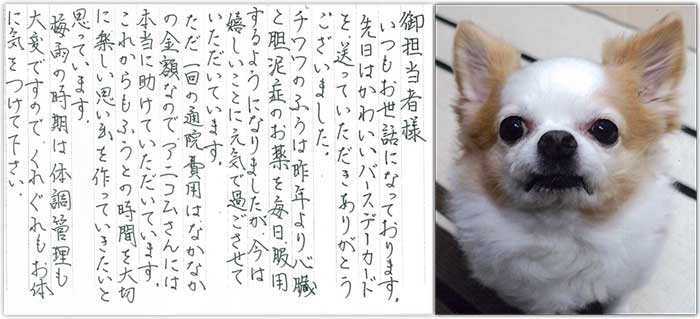 御担当者様
いつもお世話になっております。
先日はかわいいバースデーカード
を送っていただきありがとう
ございました。
チワワのふうは昨年より心臓
と胆泥症のお薬を毎日服用
するようになりましたが、今は
嬉しいことに元気で過ごさせて
いただいています。
ただ一回の通院費用はなかなか
の金額なので、アニコムさんには
本当に助けていただいています。
これからもふうとの時間を大切
に楽しい思い出を作っていきたいと
思っています。
梅雨の時期は体調管理も
大変ですので、くれぐれもお体
に気をつけて下さい。